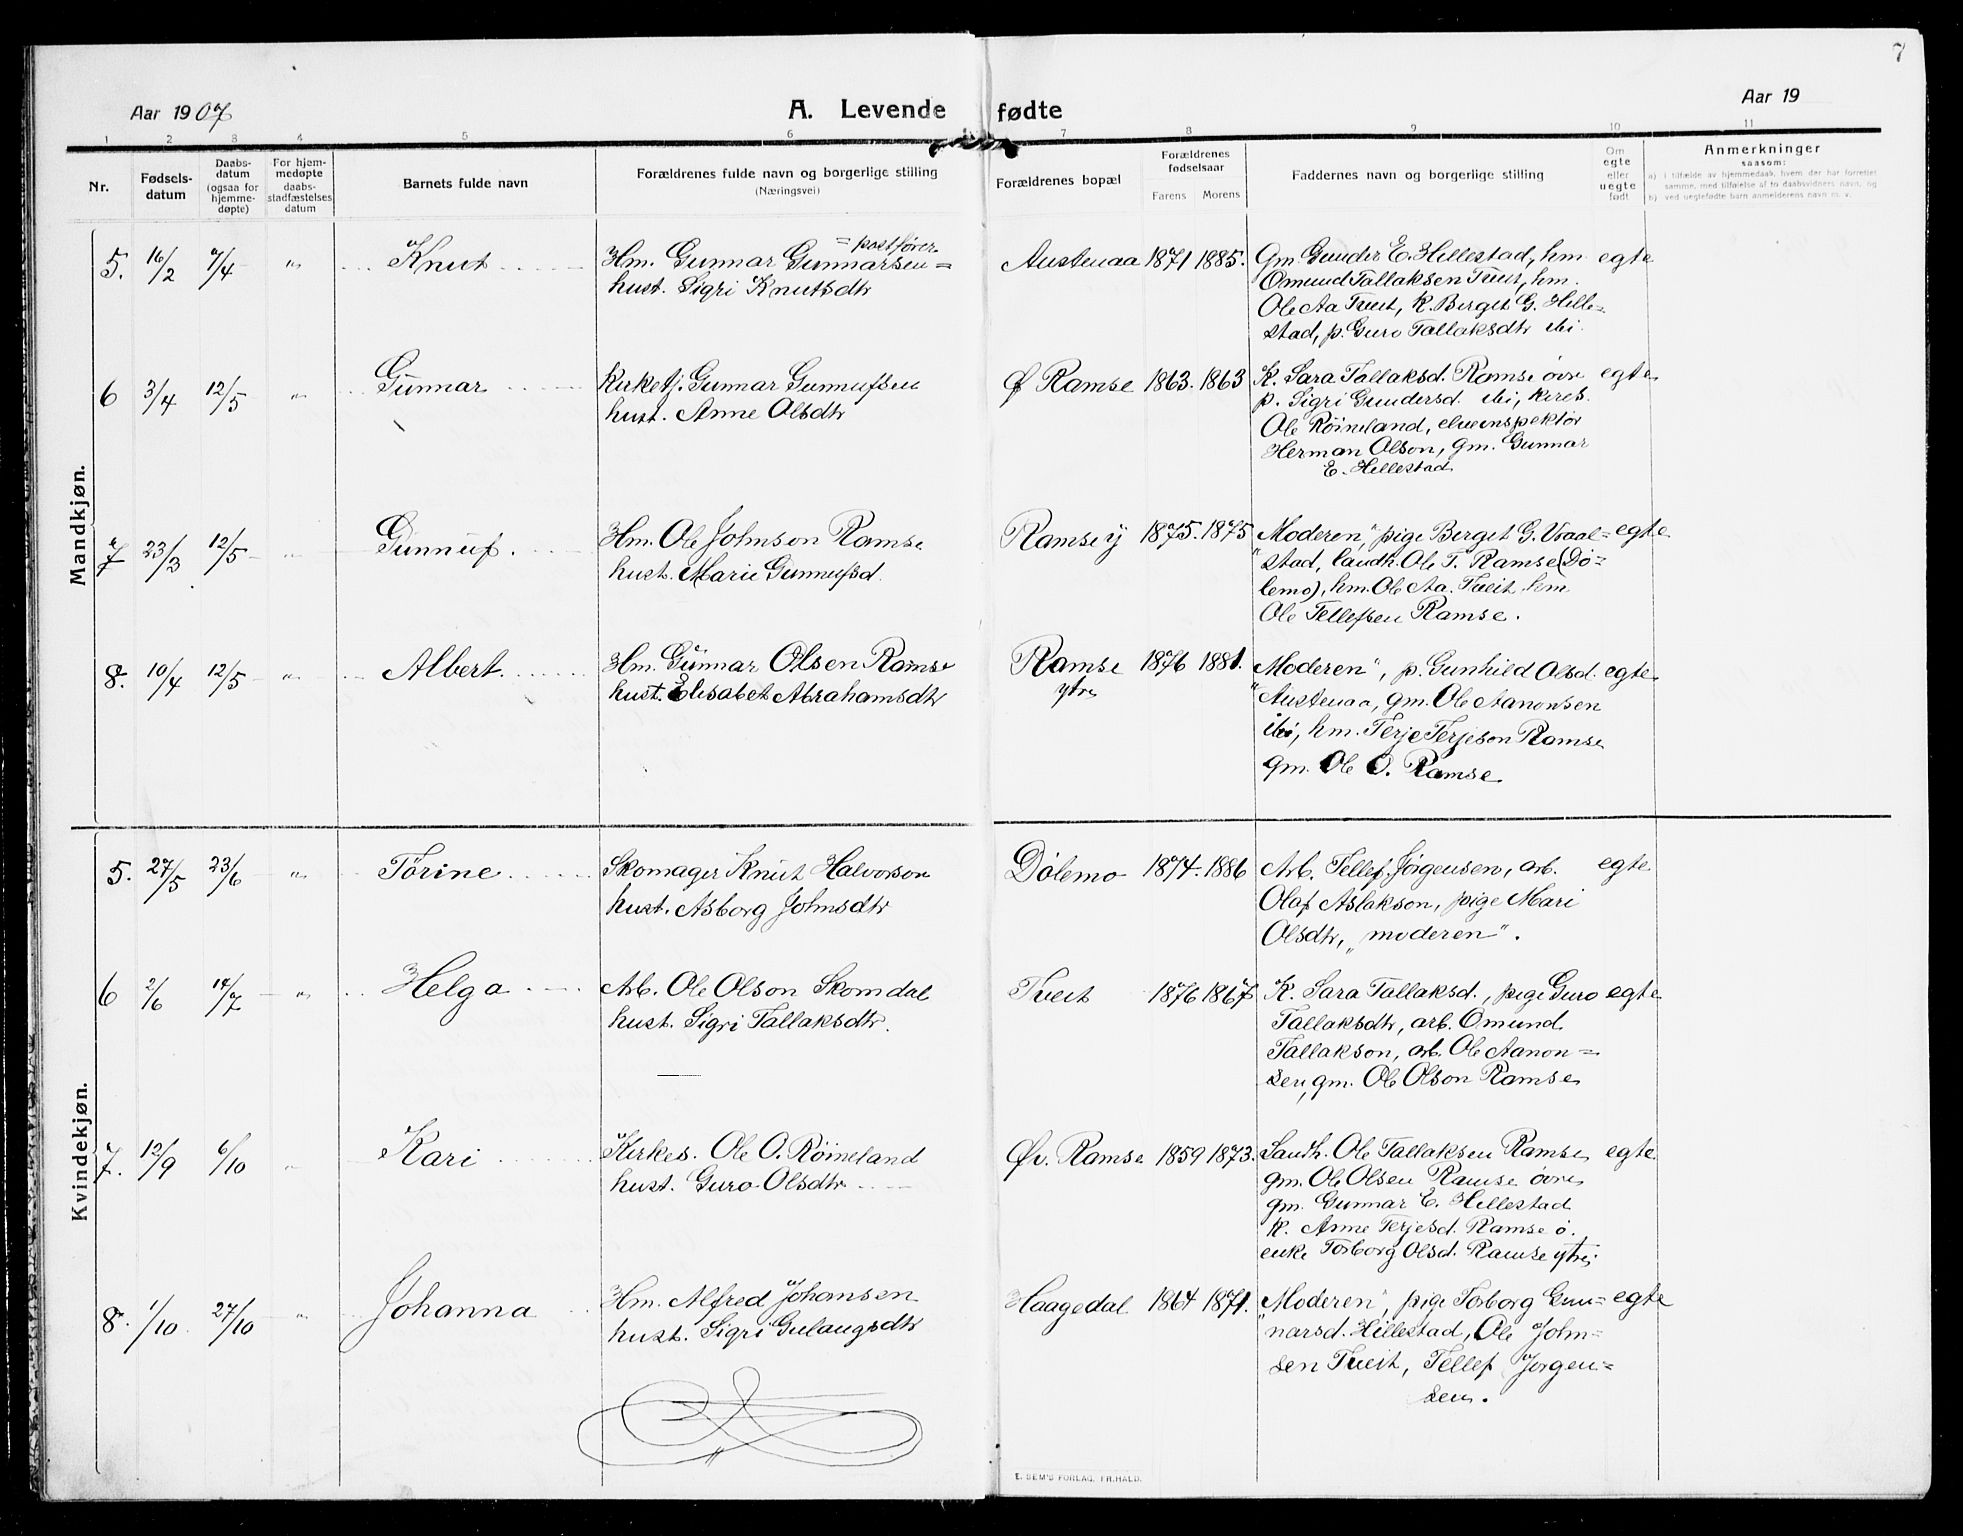 7
Aar 1907
A. Levende fødte
Aar 19
1 2 3 4 5 6 7 8 9 10 11
Nr.
Fødsels-
datum
Daabs-
datum
(ogsaa for
hjemme-
døpte)
For hjem-
medøpte
daabs-
stadfæstelses
datum
Barnets fulde navn
Forældrenes fulde navn og borgerlige stilling
(Næringsvei)
Forældrenes bopæl
Forældrenes
fødselsaar
Farens Morens
Faddernes navn og borgerlige stilling
Om
egte
eller
uegte
født
Anmerkninger
saasom:
a) i tilfælde av hjemmedaab, hvem der har forrettet
samme, med tilføielse af to daabsvidners navn, og
b) ved uegtefødte barn anmelderens navn m. v.
Mandkjøn.
5. 16/2 7/4 " Knut
= postfører
Hm. Gunnar Gunnarsen =
hust. Sigri Knutsdtr
Austenaa 1871 1885.
Gm. Gunder E. Hillestad, hm egte
Omund Tallaksen Tveit, hm.
Ole Aa Tveit, k. Berget G. Hille-
stad, p. Guro Tallaksdtr ibi.
6 3/4 12/5 " Gunnar
Kirketj. Gunnar Gunnufsen
hust. Anne Olsdtr
Ø Ramse 1863. 1863
K. Sara Tallaksd. Ramse øvre egte
p. Sigri Gundersd. ibi, kirkes.
Ole Røineland, elveinspektør
Herman Olson, gm. Gunnar
E. Hillestad
7 23/3 12/5 " Gunnuf.
Hm. Ole Johnson Ramse
hust. Marie Gunnufsd.
Ramse y 1875. 1875
"Moderen", pige Berget G. Vraal= egte
stad, landh. Ole T. Ramse (Dø=
lemo), hm. Ole Aa. Tveit hm
Ole Tellefsen Ramse.
8. 10/4 12/5 " Albert.
Hm. Gunnar Olsen Ramse
hust. Elisabet Abrahamsdtr
Ramse 1876 1881.
ytre
"Moderen", p. Gunhild Olsd. egte
Austenaa, gm. Ole Aanonsen
ibi, hm. Terje Terjeson Ramse
gm. Ole O. Ramse
Kvindekjøn.
5. 27/5 23/6 " Torine
Skomager Knut Halvorson
hust. Asborg Johnsdtr
Dølemo 1874. 1886
Arb. Tellef Jørgensen, arb. egte
Olaf Aslakson, pige Mari
Olsdtr, "moderen".
6 2/6 14/7 " Helga
Arb. Ole Olson Skomdal
hust. Sigri Tallaksdtr.
Tveit 1876 1867
K. Sara Tallaksd., pige Guro egte
Tallaksdtr, arb. Omund
Tallakson, arb. Ole Aanon=
sen, gm. Ole Olson Ramse
7. 12/9 6/10 " Kari
Kirkes. Ole O. Røineland
hust. Guro Olsdtr
Øv. Ramse 1859 1873.
Landh. Ole Tallaksen Ramse egte
gm. Ole Olsen Ramse øvre
gm. Gunnar E. Hillestad
k. Anne Terjesd. Ramse ø.
enke Torborg Olsd. Ramse ytre
8. 1/10 27/10 " Johanna
Hm. Alfred Johansen
hust. Sigri Gulaugsdtr
Haagedal 1864 1871.
"Moderen", pige Torborg Gun= egte
narsd. Hillestad, Ole John=
sen Tveit, Tellef Jørgen=
sen.
E. SEM'S FORLAG, FR.HALD.